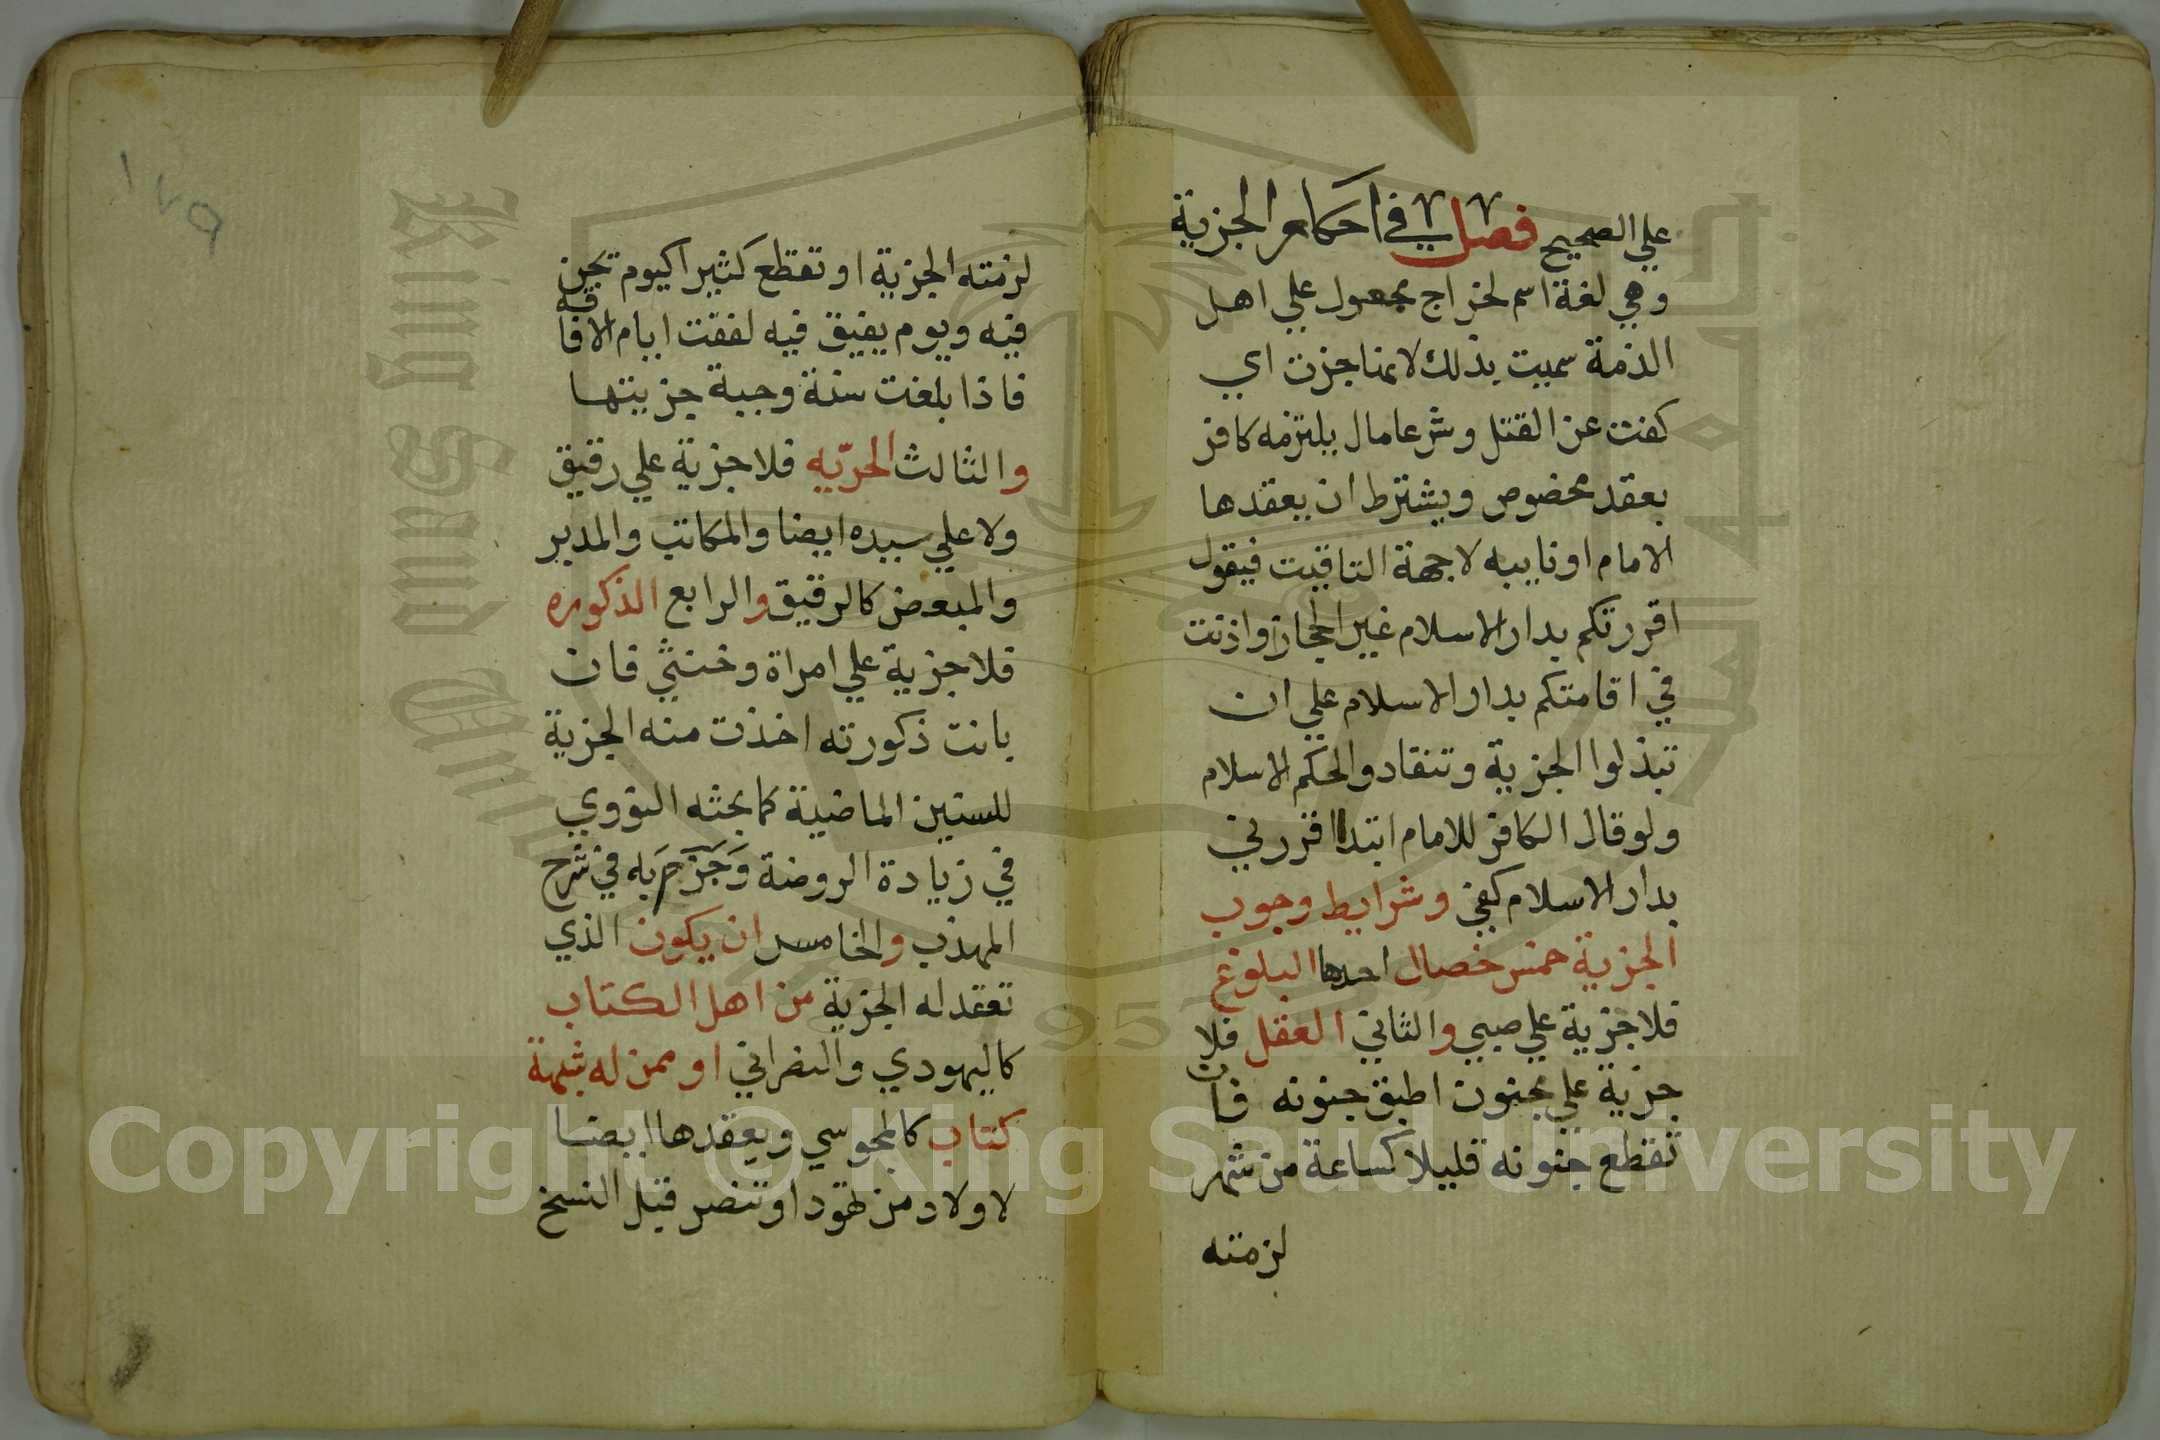 علي الصحيح فصل في احكام الجزية
وهي لغة اسم لخراج مجعول علي اهل
الذمة سميت بذلك لانها جزت اي
كفت عن القتل وشرعا مال يلتزمه كافر
بعقد مخصوص ويشترط ان يعقدها
الامام او نايبه لا جهة التاقيت فيقول
اقررتكم بدار الاسلام غير الحجاز واذنت
في اقامتكم بدار الاسلام علي ان
تبذلوا الجزية وتنقادوا لحكم الاسلام
ولو قال الكافر للامام ابتدا اقررني
بدار الاسلام كفي وشرايط وجوب
الجزية خمس خصال احدها البلوغ
فلا جزية علي صبي والثاني العقل فلا
جزية علي مجنون اطبق جنونه فان
تقطع جنونه قليلا كساعة من شهر
لزمته
لزمته الجزية او تقطع كثيرا كيوم يجن
فيه ويوم يفيق فيه لفقت ايام الافاقه
فاذا بلغت سنة وجبة جزيتها
والثالث الحرّيه فلا جزية علي رقيق
ولا علي سيده ايضا والمكاتب والمدبر
والمبعض كالرقيق والرابع الذكوره
فلا جزية علي امراة وخنثي فان
بانت ذكورته اخذت منه الجزية
للسنين الماضية كما بحثه النووي
في زيادة الروضة وَجَزَم به في شرح
المهذب والخامس ان يكون الذي
تعقد له الجزية من اهل الكتاب
كاليهودي والنصراني او ممن له شبهة
كتاب كالمجوسي ويعقدها ايضا
لاولاد من تهود او تنصر قبل النسخ
١٧٩
King Saud University
1957
Copyright © King Saud University